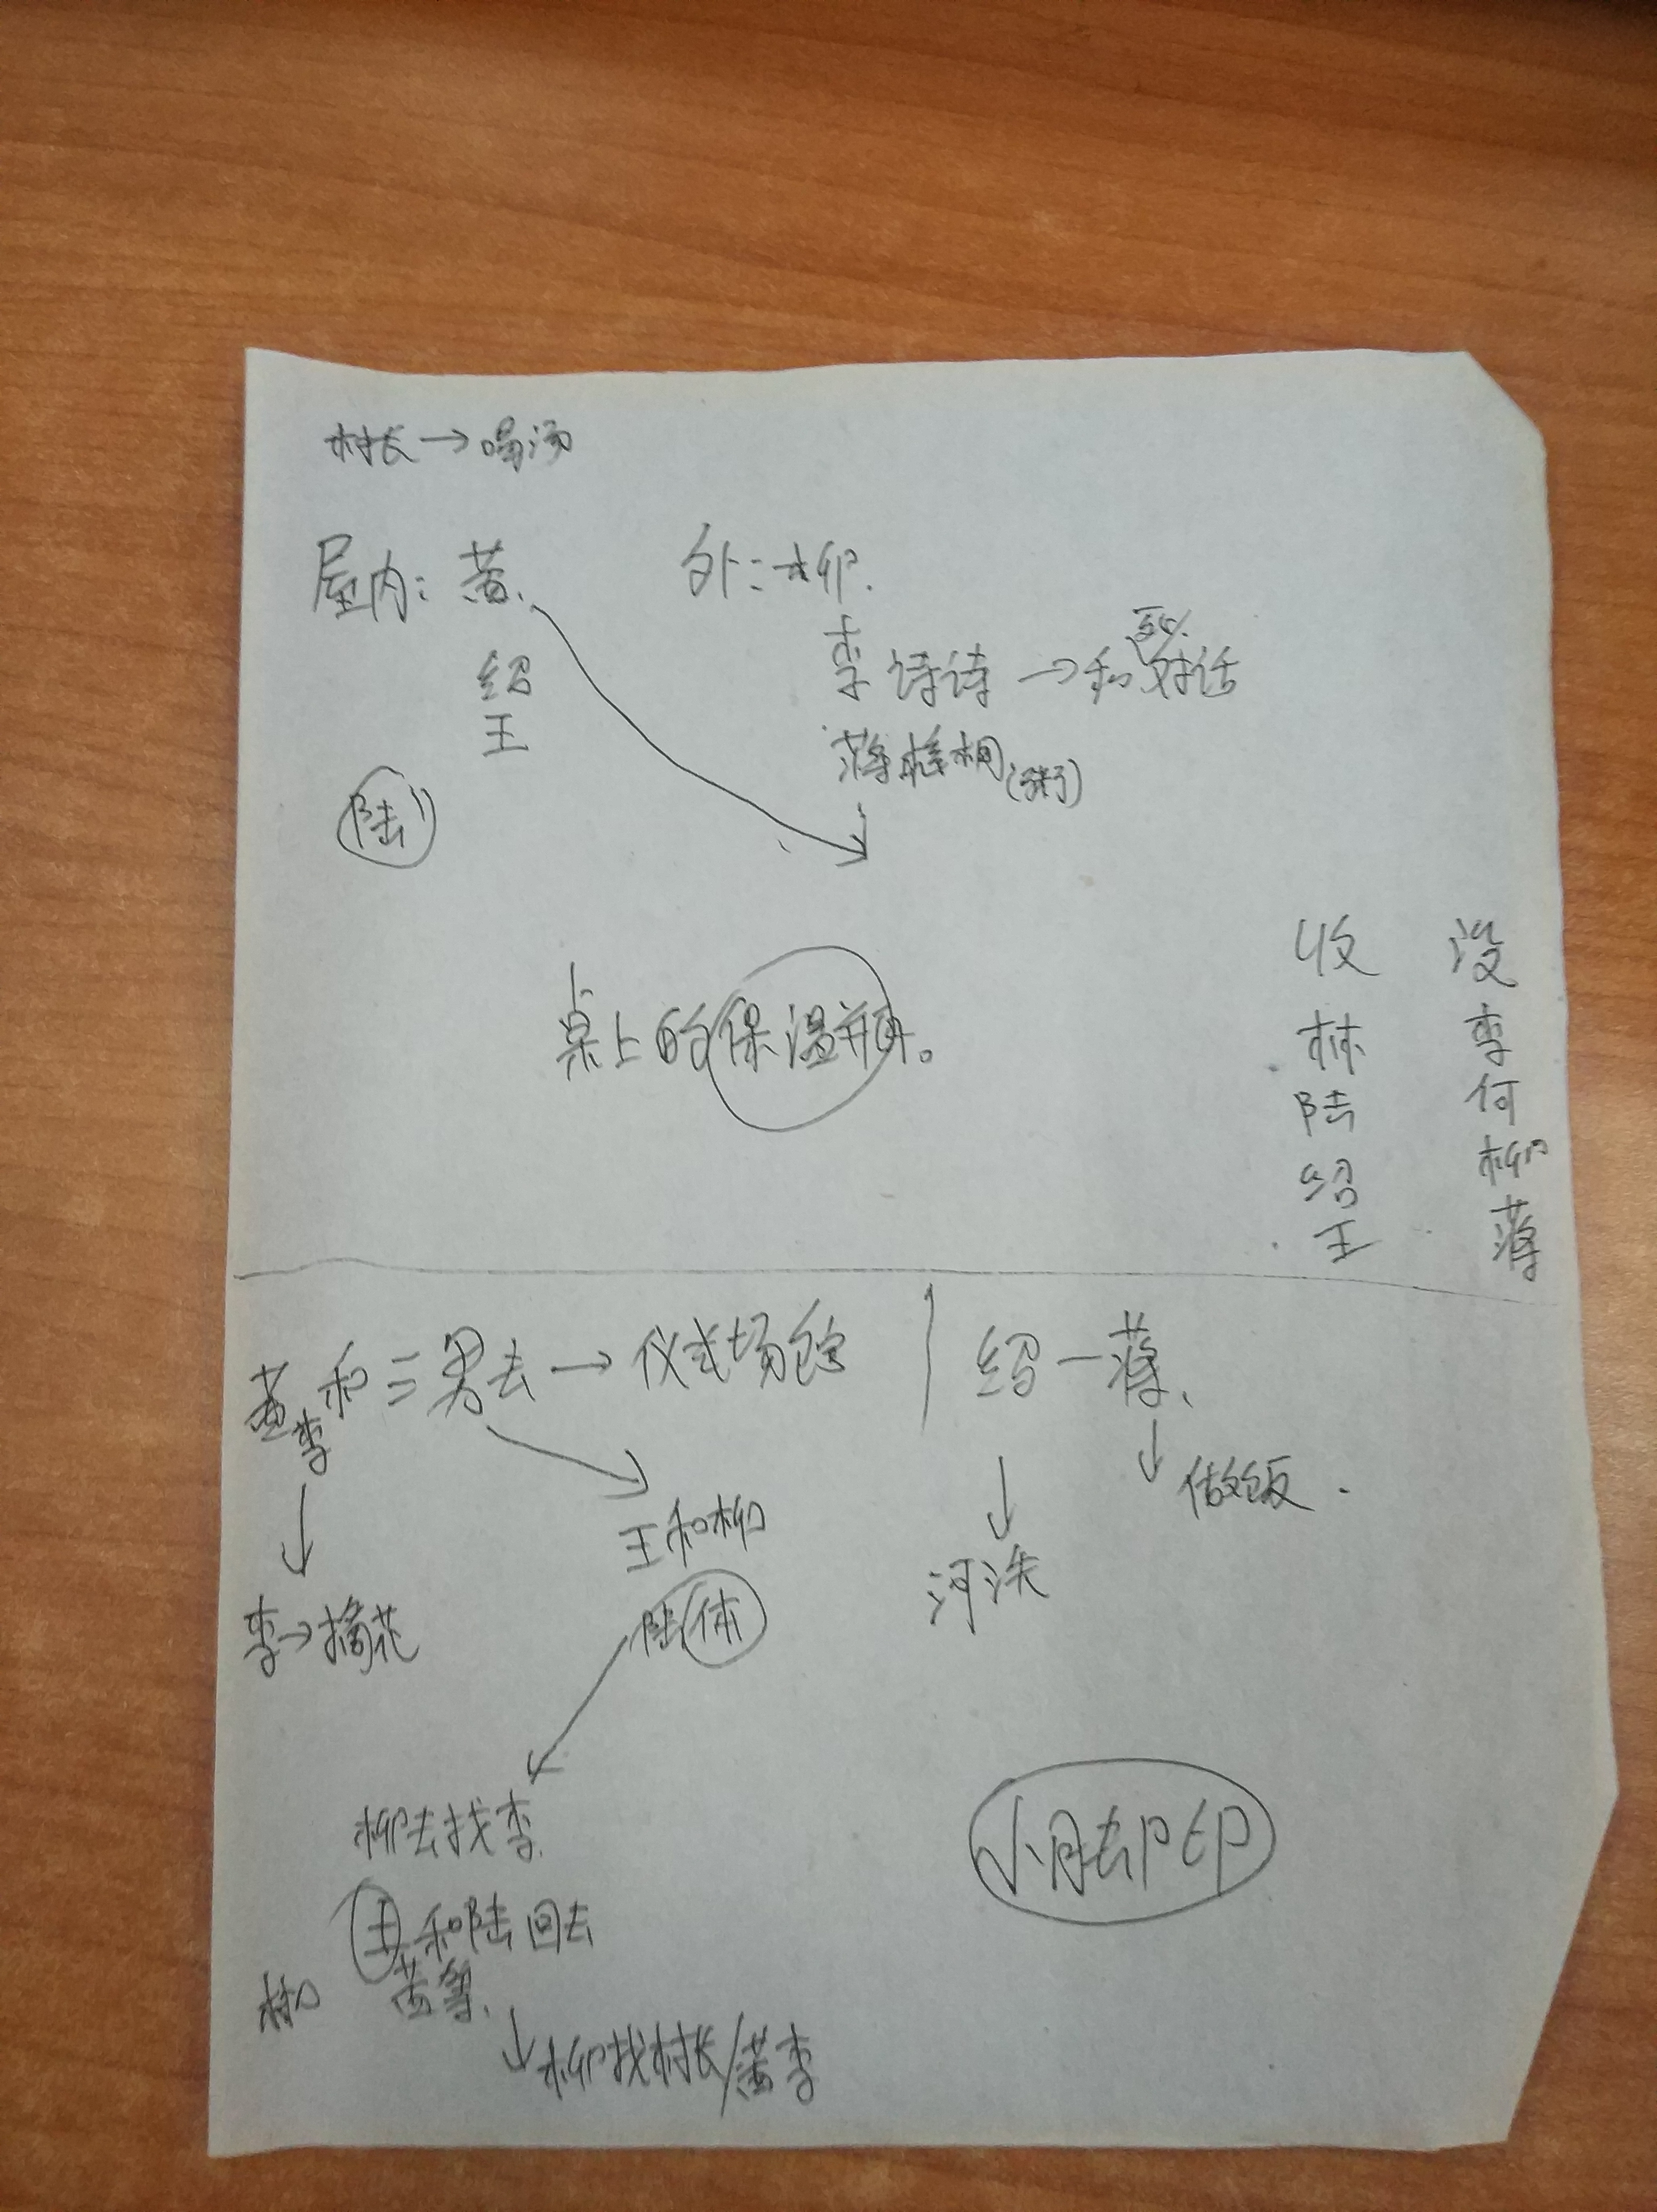 村长→喝汤
屋内：黄、 外：柳.
绍 李诗诗→和对话
王 蒋梧桐(粥)
陆
桌上的保温瓶。
收 没
林 李
陆 何
绍 柳
王 蒋
黄李和三男去→仪式场
绍一蒋、
做饭.
王和柳
河洗
李→摘花
陆休
柳去找李.
王和陆回去
黄等.
柳
柳找村长/黄李